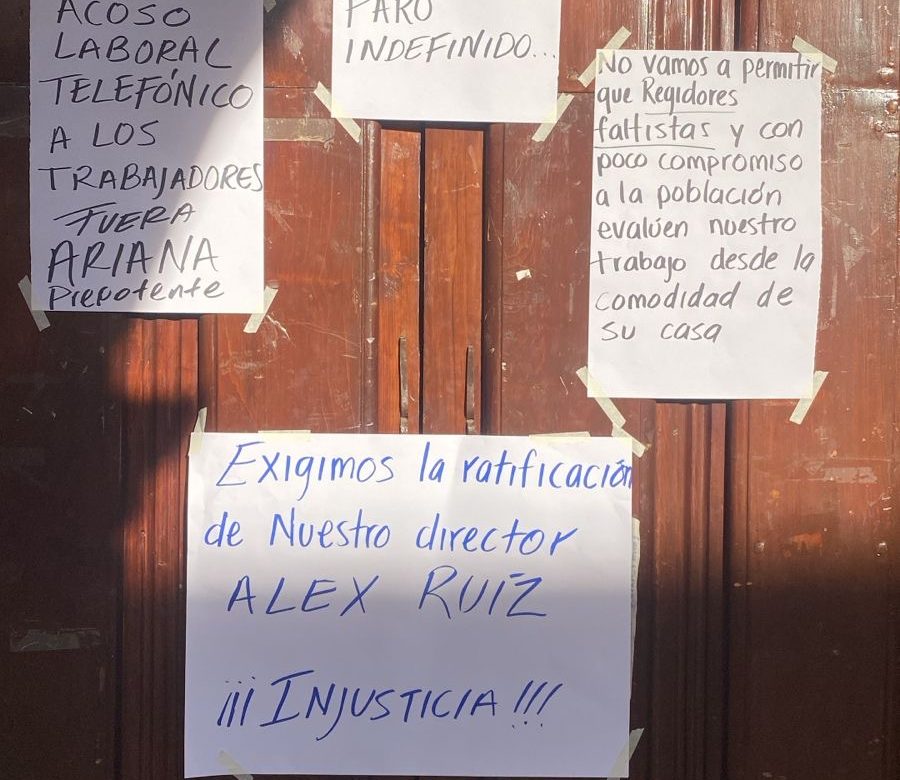 ACOSO
LABORAL
TELEFÓNICO
A LOS
TRABAJADORES
FUERA
ARIANA
Prepotente
PARO
INDEFINIDO...
No vamos a permitir
que Regidores
faltistas y con
poco compromiso
a la población
evalúen nuestro
trabajo desde la
comodidad de
su casa
Exigimos la ratificación
de Nuestro director
ALEX RUÍZ
¡¡¡INJUSTICIA!!!